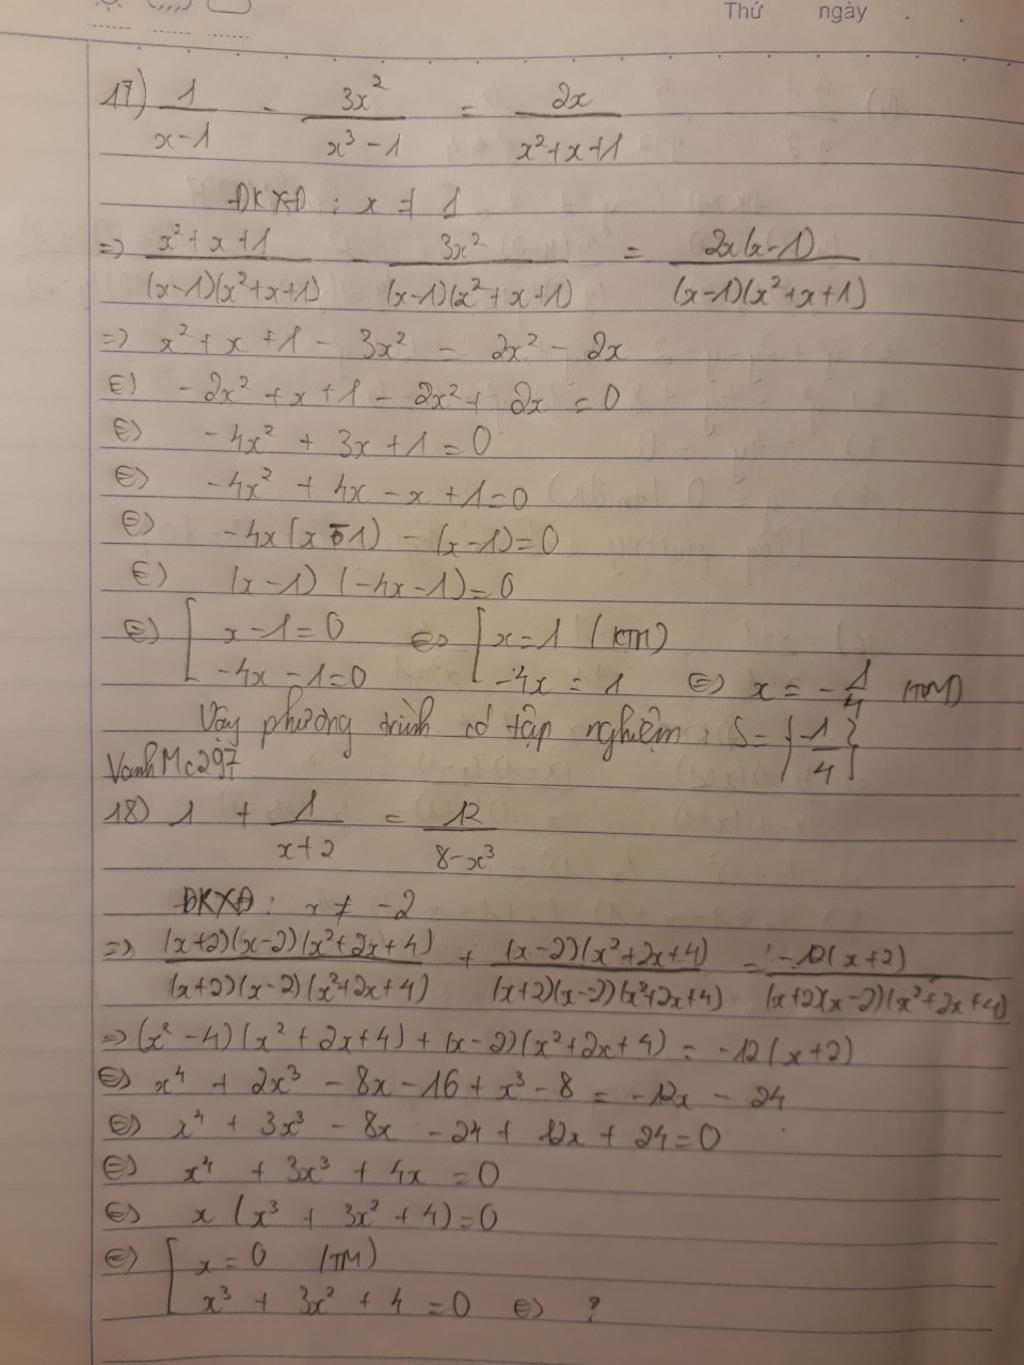 Thứ ngày
17) 1/(x-1) - 3x²/(x³-1) = 2x/(x²+x+1)
ĐKXĐ: x ≠ 1
=> (x²+x+1)/((x-1)(x²+x+1)) - 3x²/((x-1)(x²+x+1)) = 2x(x-1)/((x-1)(x²+x+1))
=> x²+x+1 - 3x² = 2x² - 2x
⇔ -2x² + x + 1 - 2x² + 2x = 0
⇔ -4x² + 3x + 1 = 0
⇔ -4x² + 4x - x + 1 = 0
⇔ -4x(x-1) - (x-1) = 0
⇔ (x-1)(-4x-1) = 0
⇔ [ x-1=0 ⇔ [ x=1 (KTM)
-4x-1=0 -4x = 1 ⇔ x = -1/4 (TM)
Vậy phương trình có tập nghiệm: S = {-1/4}
VanhMc297
18) 1 + 1/(x+2) = 12/(8-x³)
ĐKXĐ: x ≠ -2
=> (x+2)(x-2)(x²+2x+4)/((x+2)(x-2)(x²+2x+4)) + (x-2)(x²+2x+4)/((x+2)(x-2)(x²+2x+4)) = -12(x+2)/((x+2)(x-2)(x²+2x+4))
=> (x²-4)(x²+2x+4) + (x-2)(x²+2x+4) = -12(x+2)
⇔ x⁴ + 2x³ - 8x - 16 + x³ - 8 = -12x - 24
⇔ x⁴ + 3x³ - 8x - 24 + 12x + 24 = 0
⇔ x⁴ + 3x³ + 4x = 0
⇔ x(x³ + 3x² + 4) = 0
⇔ [ x = 0 (TM)
x³ + 3x² + 4 = 0 ⇔ ?